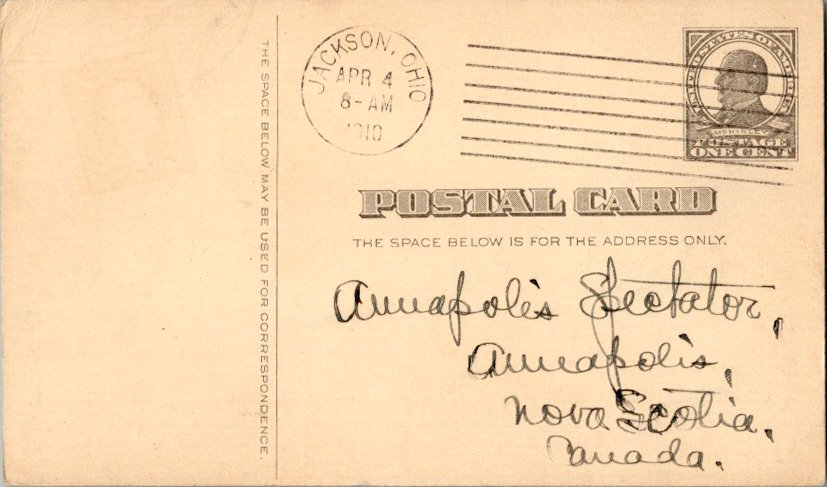 THE SPACE BELOW MAY BE USED FOR CORRESPONDENCE.
JACKSON, OHIO
APR 4
8-AM
1910
UNITED STATES OF AMERICA
McKINLEY
POSTAGE
ONE CENT
POSTAL CARD
THE SPACE BELOW IS FOR THE ADDRESS ONLY.
Annapolis Spectator,
Annapolis,
Nova Scotia.
Canada.